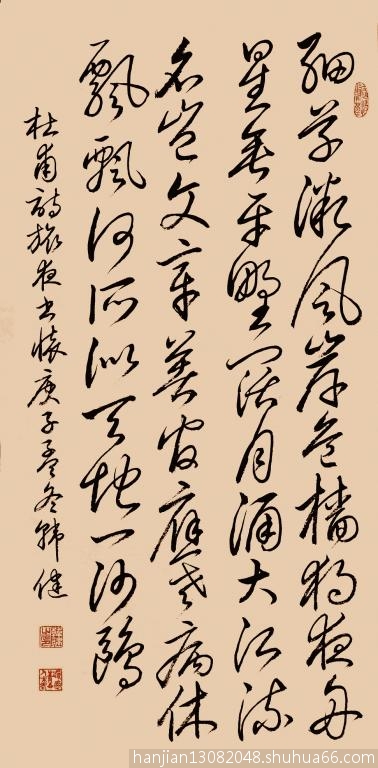 細草微風岸危檣獨夜舟
星垂平野闊月涌大江流
名豈文章著官應老病休
飄飄何所似天地一沙鷗
杜甫詩旅夜書懷庚子孟冬韩健
hanjian13082048.shuhua66.com